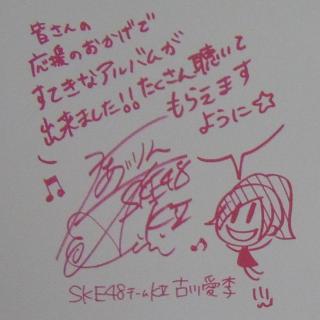 皆さんの
応援のおかげで
すてきなアルバムが
出来ました!!たくさん聴いて
もらえます
ように☆
あいりん
SKE48
KII
SKE48チームKII 古川愛李